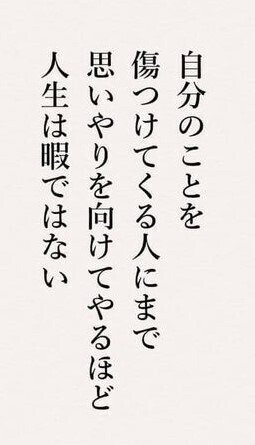 自分のことを
傷つけてくる人にまで
思いやりを向けてやるほど
人生は暇ではない